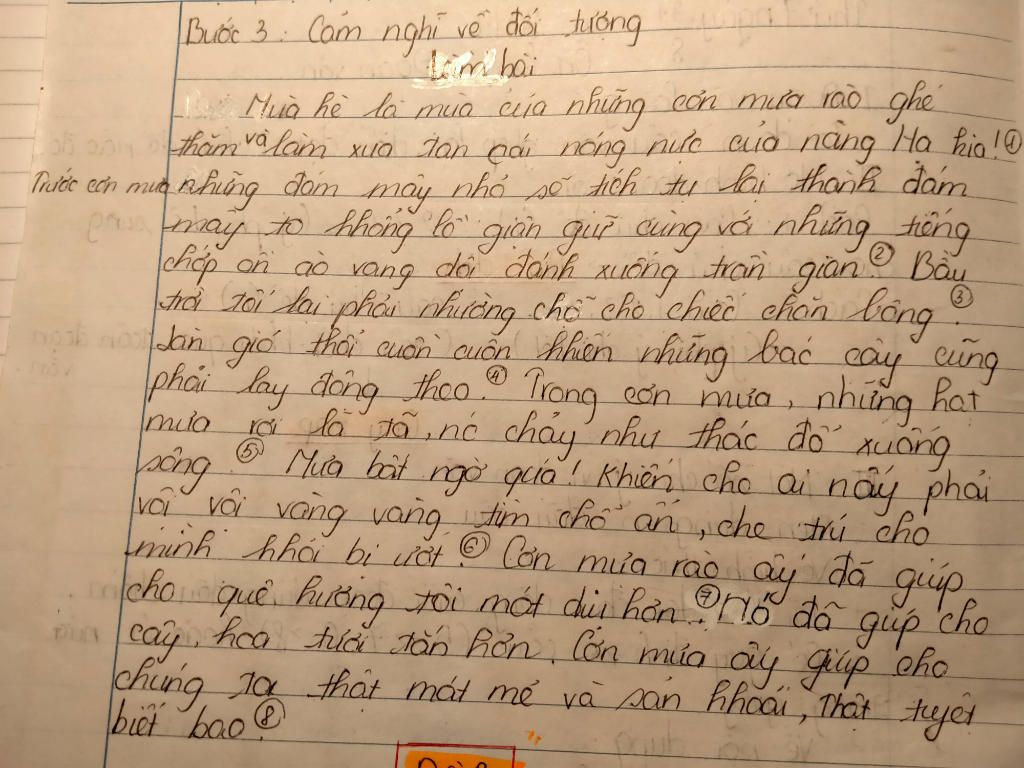 Bước 3: Cảm nghĩ về đối tượng
Làm bài
Mùa hè là mùa của những cơn mưa rào ghé
thăm và làm xua tan cái nóng nực của nàng Hạ kia! ①
Trước cơn mưa những đám mây nhỏ sẽ tích tụ lại thành đám
mây to khổng lồ giận giữ cùng với những tiếng
chớp ồn ào vang dội đánh xuống trần gian. ② Bầu
trời tối lại phải nhường chỗ cho chiếc chăn bông. ③
Làn gió thổi cuồn cuộn khiến những bác cây cũng
phải lay động theo. ④ Trong cơn mưa, những hạt
mưa rơi lã tã, nó chảy như thác đổ xuống
sông. ⑤ Mưa bất ngờ quá! Khiến cho ai nấy phải
vội vội vàng vàng tìm chỗ ẩn, che trú cho
mình khỏi bị ướt. ⑥ Cơn mưa rào ấy đã giúp
cho quê hương tôi mát dịu hơn. ⑦ Nó đã giúp cho
cây, hoa tươi tắn hơn. Cơn mưa ấy giúp cho
chúng ta thật mát mẻ và sản khoái, Thật tuyệt
biết bao. ⑧